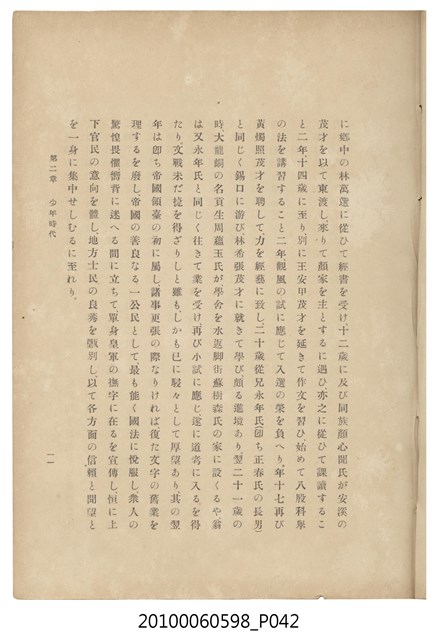 に鄕中の林萬選に從ひて經書を受け十二歲に及び同族顏心開氏が安溪の
茂才を以て東渡し來りて顏家を主とするに遇ひ、亦之に從ひて課讀するこ
と二年十四歲に至り別に王安甲茂才を延きて作文を習ひ始めて八股科擧
の法を講習すること二年觀風の試に應じて入選の榮を負へり。年十七再び
黃燭照茂才を聘して力を經藝に致し、二十歲從兄永年氏(卽ち正春氏の長男)
と同じく錫口に游び、林希張茂才に就きて學び、頗る進境あり翌二十一歲の
時大龍峒の名貢生周蘊玉氏が學舍を水返脚街蘇樹森氏の家に設くるや翁
は又永年氏と同じく往きて業を受け再び小試に應じ遂に道考に入るを得
たり、文戰未だ捷を得ざりしと雖もしかも已に駸々として厚望あり其の翌
年は卽ち帝國領臺の初に屬し諸事更張の際なりければ復た文字の舊業を
理するを廢し帝國の善良なる一公民として最も能く國法に悅服し衆人の
驚惶畏懼嚮背に迷へる間に立ちて單身皇軍の撫字に在るを宣傳し、恒に上
下官民の意向を體し地方士民の良莠を甄別し、以て各方面の信賴と聞望と
を一身に集中せしむるに至れり。
第二章 少年時代
一一
20100060598_P042